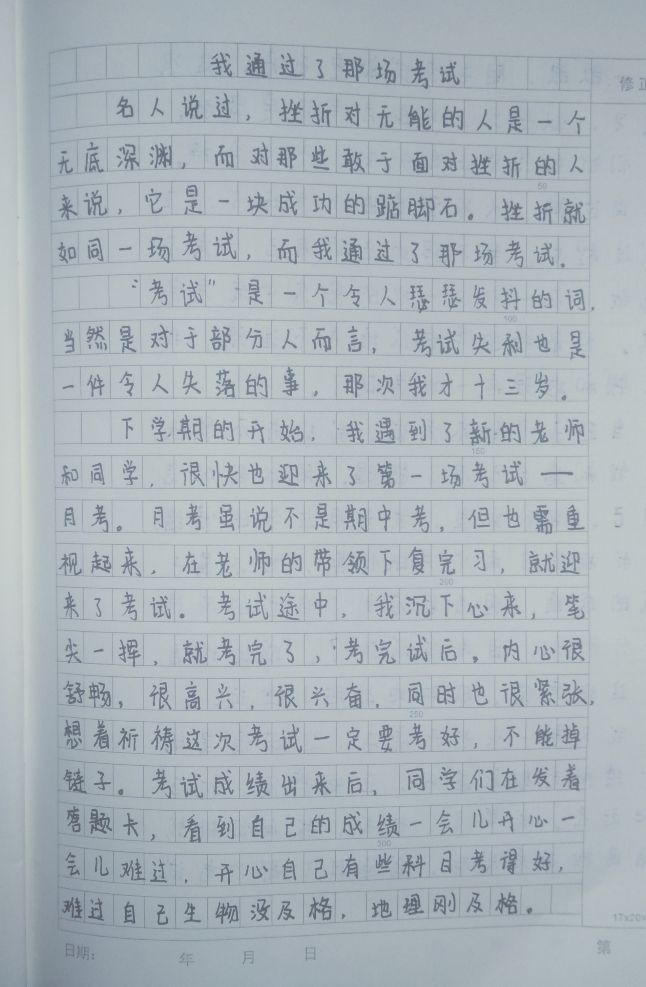 我通过了那场考试
修正
名人说过，挫折对无能的人是一个
无底深渊，而对那些敢于面对挫折的人
50
来说，它是一块成功的踮脚石。挫折就
如同一场考试，而我通过了那场考试.
“考试”是一个令人瑟瑟发抖的词，
100
当然是对于部分人而言，考试失利也是
一件令人失落的事，那次我才十三岁。
下学期的开始，我遇到了新的老师
150
和同学，很快也迎来了第一场考试——
月考。月考虽说不是期中考，但也需重
视起来，在老师的带领下复完习，就迎
200
来了考试。考试途中，我沉下心来，笔
尖一挥，就考完了，考完试后。内心很
舒畅，很高兴，很兴奋，同时也很紧张，
250
想着祈祷这次考试一定要考好，不能掉
链子。考试成绩出来后，同学们在发着
答题卡，看到自己的成绩一会儿开心一
300
会儿难过，开心自己有些科目考得好，
难过自己生物没及格，地理刚及格。
17x20=
日期： 年 月 日
第